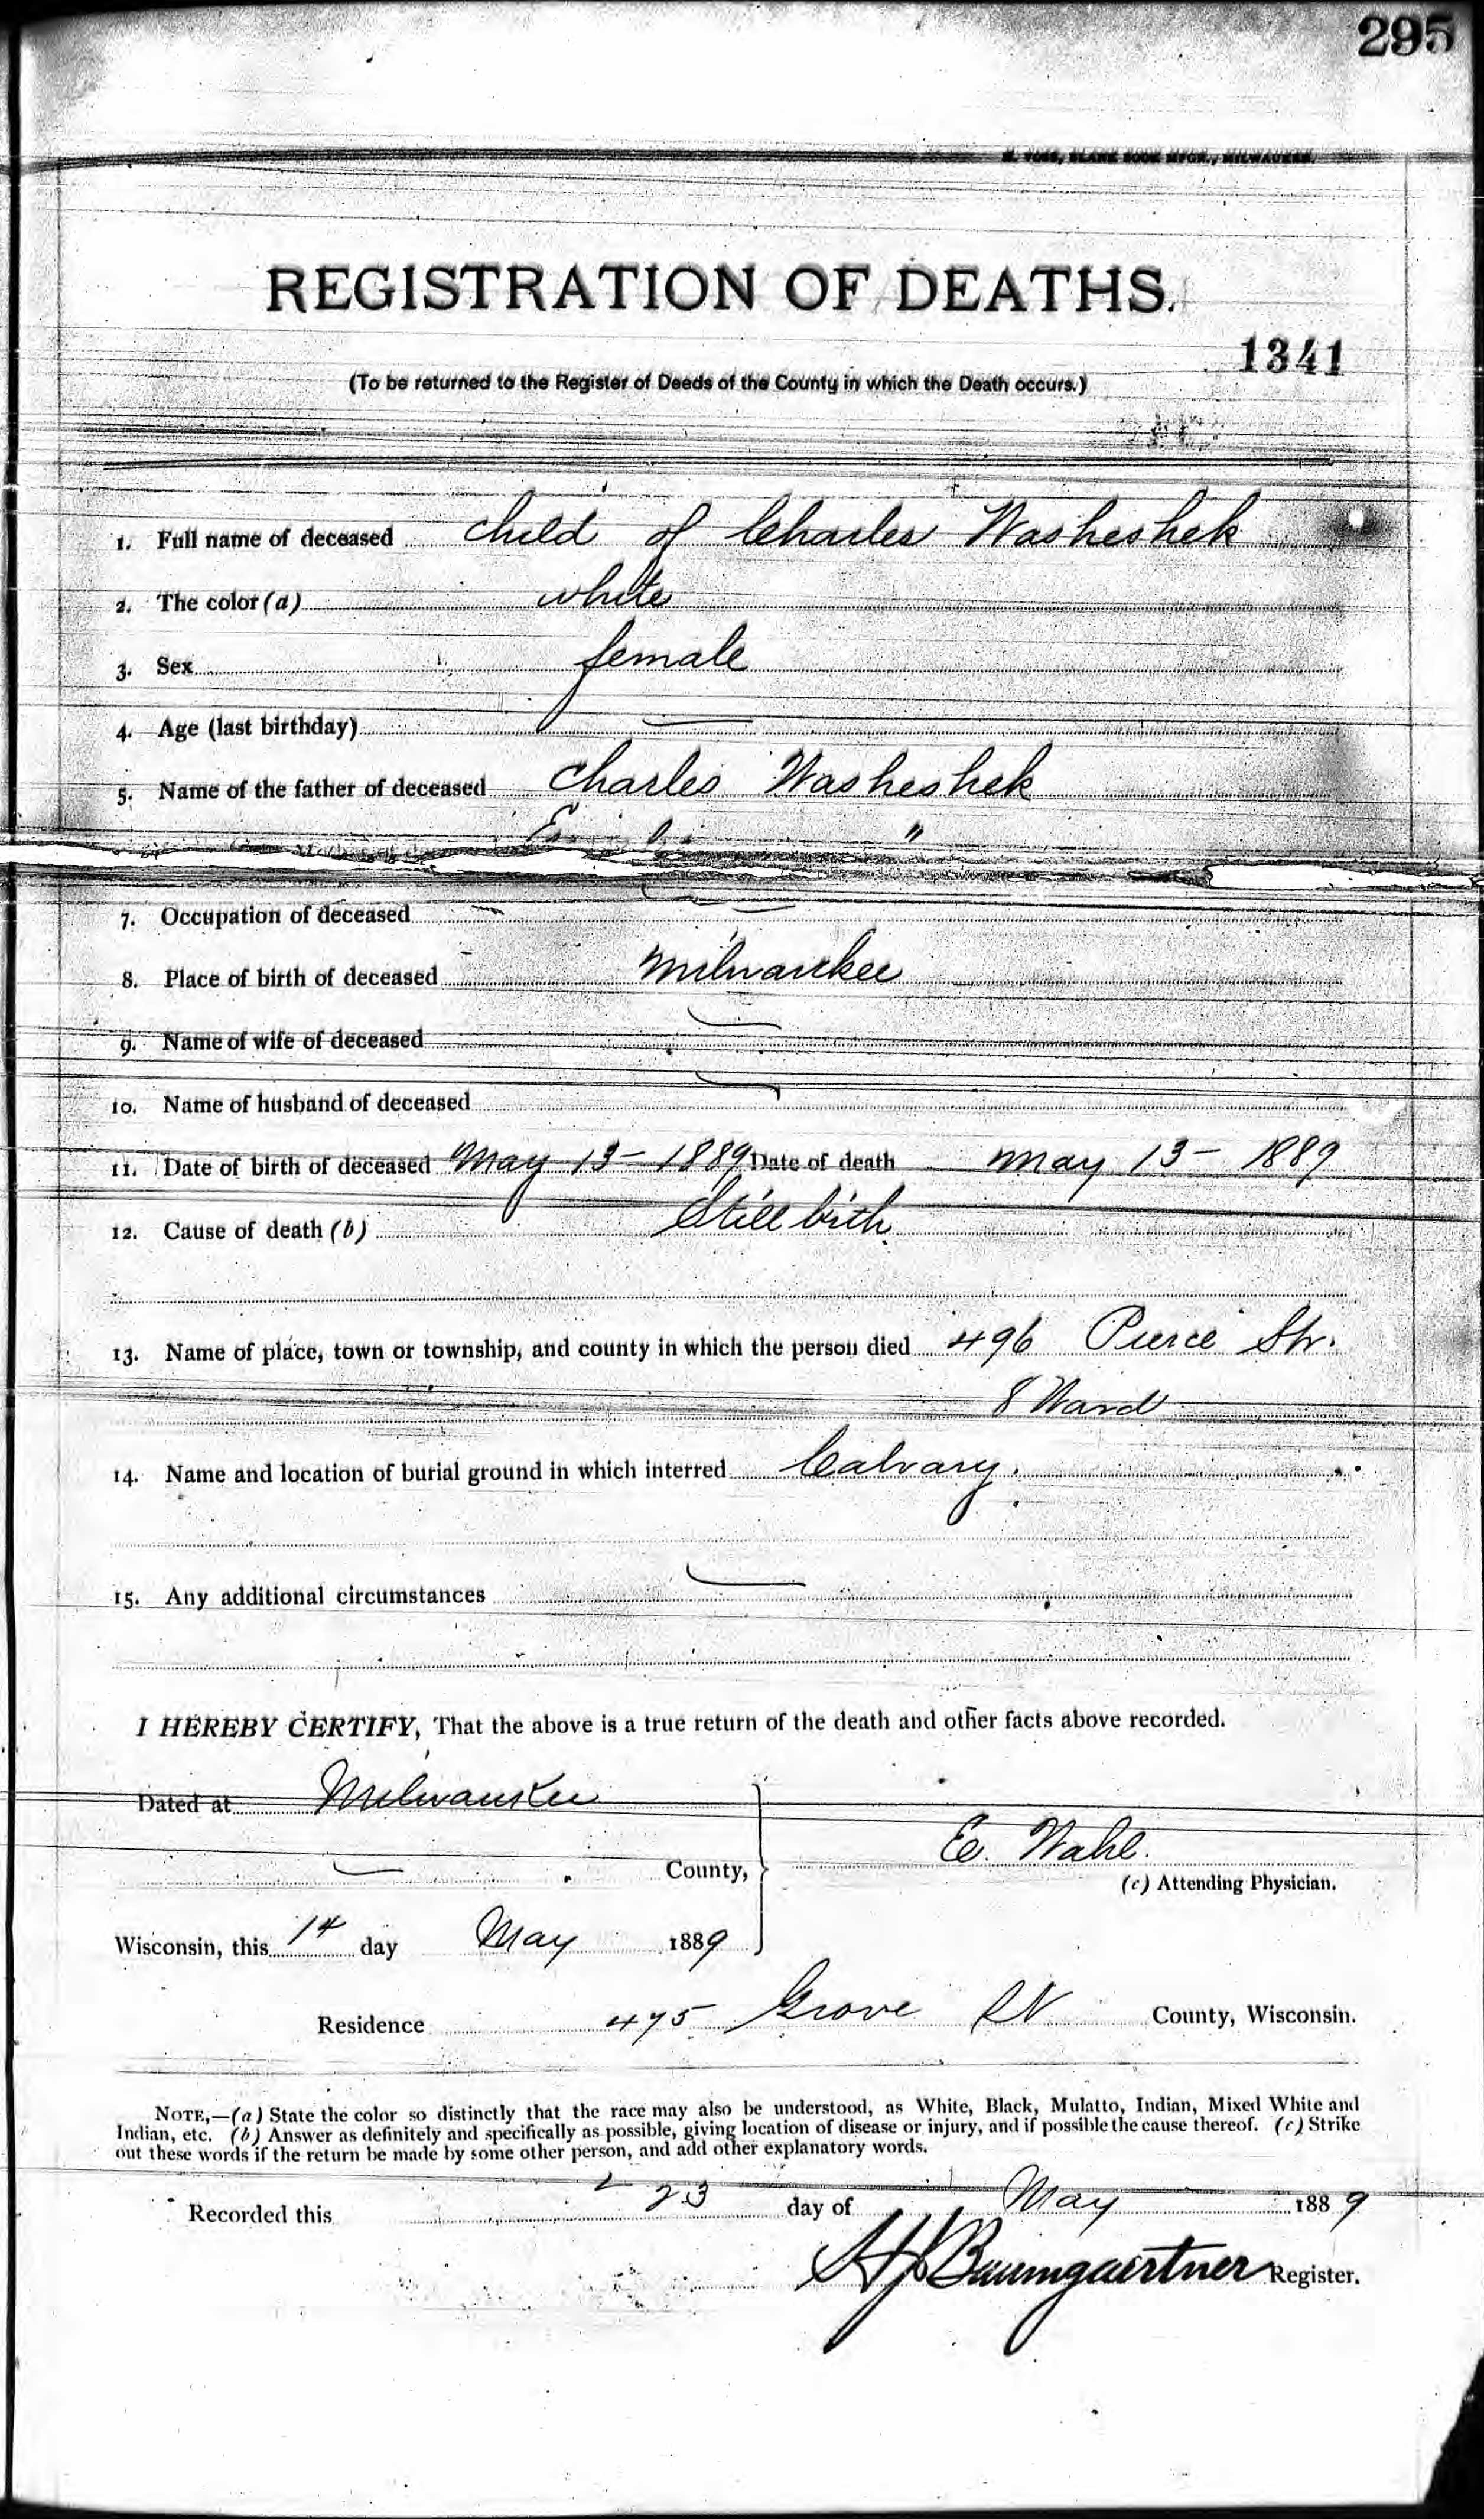 295
H. VOSS, BLANK BOOK MFGR., MILWAUKEE.
REGISTRATION OF DEATHS.
1341
(To be returned to the Register of Deeds of the County in which the Death occurs.)
1. Full name of deceased child of Charles Washeshek
2. The color (a) white
3. Sex female
4. Age (last birthday) —
5. Name of the father of deceased Charles Washeshek
"
7. Occupation of deceased —
8. Place of birth of deceased Milwaukee
9. Name of wife of deceased —
10. Name of husband of deceased —
11. Date of birth of deceased May 13 – 1889 Date of death May 13 – 1889
12. Cause of death (b) Still birth
13. Name of place, town or township, and county in which the person died 496 Pierce Str.
8 Ward
14. Name and location of burial ground in which interred Calvary.
15. Any additional circumstances —
I HEREBY CERTIFY, That the above is a true return of the death and other facts above recorded.
Dated at Milwaukee
E. Wahl.
— County,
(c) Attending Physician.
Wisconsin, this 14 day May 1889
Residence 475 Grove St County, Wisconsin.
NOTE,—(a) State the color so distinctly that the race may also be understood, as White, Black, Mulatto, Indian, Mixed White and
Indian, etc. (b) Answer as definitely and specifically as possible, giving location of disease or injury, and if possible the cause thereof. (c) Strike
out these words if the return be made by some other person, and add other explanatory words.
Recorded this 23 day of May 1889
Baumgaertner Register.